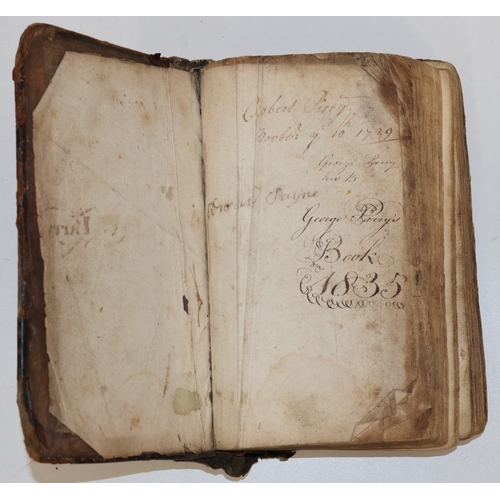 Robert Perry
Novber ye 10th 1729
George Perry
his B
Payne
George Perrys
Book
1835